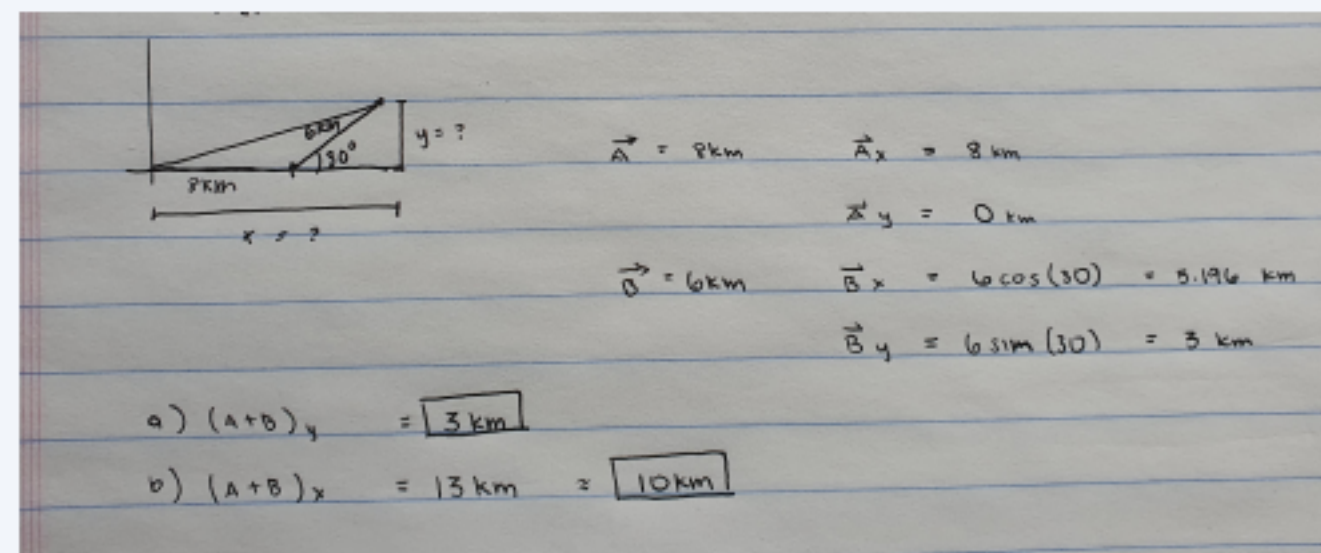 6km
30°
y = ?
8km
x = ?
A = 8km Ax = 8 km
Ay = 0 km
B = 6km Bx = 6 cos(30) = 5.196 km
By = 6 sin (30) = 3 km
a) (A+B)y = 3 km
b) (A+B)x = 13 km = 10km